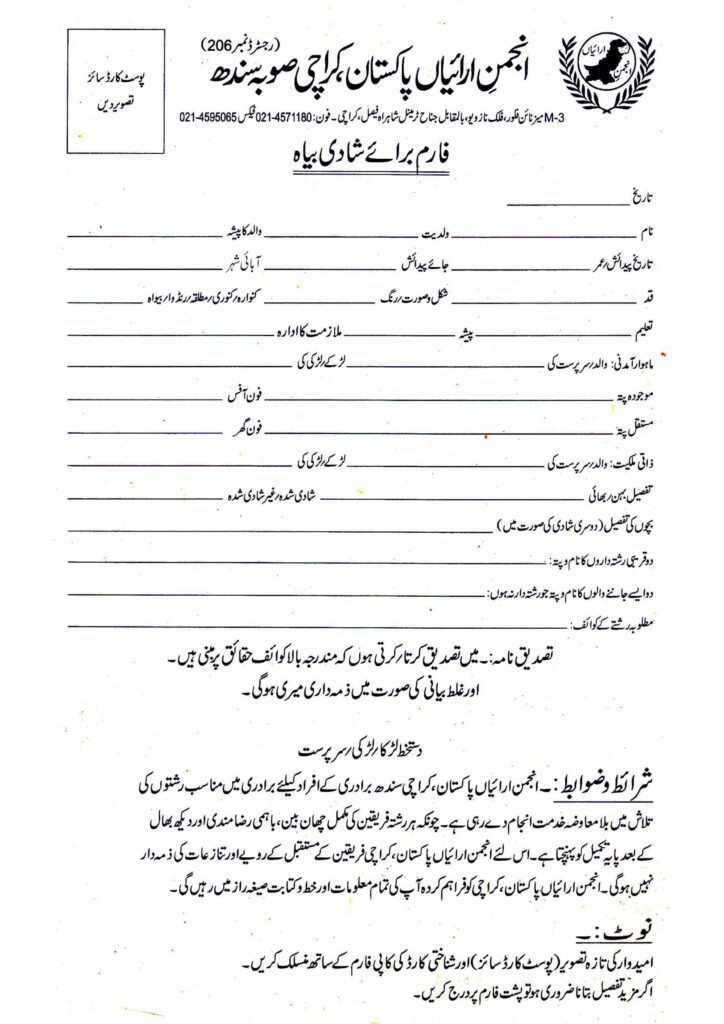 (رجسٹرڈ نمبر 206)
انجمنِ ارائیاں پاکستان، کراچی صوبہ سندھ
ارائیاں
انجمن
پوسٹ کارڈ سائز
تصویر دیں
M-3 میزنائن فلور، فلک ناز ویو، بالمقابل جناح ٹرمینل شاہراہ فیصل، کراچی۔ فون: 4571180-021 فیکس 4595065-021
فارم برائے شادی بیاہ
تاریخ
نام ولدیت والد کا پیشہ
تاریخ پیدائش/عمر جائے پیدائش آبائی شہر
قد شکل وصورت/رنگ کنوارہ/کنوری/مطلقہ/رنڈوا/بیواہ
تعلیم پیشہ ملازمت کا ادارہ
ماہوار آمدنی: والد/سرپرست کی لڑکے/لڑکی کی
موجودہ پتہ فون آفس
مستقل پتہ فون گھر
ذاتی ملکیت: والد/سرپرست کی لڑکے/لڑکی کی
تفصیل بہن/بھائی شادی شدہ/غیر شادی شدہ
بچوں کی تفصیل (دوسری شادی کی صورت میں)
دو قریبی رشتہ داروں کا نام و پتہ:
دو ایسے جاننے والوں کا نام و پتہ جو رشتہ دار نہ ہوں:
مطلوبہ رشتے کے کوائف:
تصدیق نامہ:۔ میں تصدیق کرتا/کرتی ہوں کہ مندرجہ بالا کوائف حقائق پر مبنی ہیں۔
اور غلط بیانی کی صورت میں ذمہ داری میری ہوگی۔
دستخط لڑکا/لڑکی/سرپرست
شرائط و ضوابط:۔ انجمن ارائیاں پاکستان، کراچی سندھ برادری کے افراد کیلئے برادری میں مناسب رشتوں کی
تلاش میں بلا معاوضہ خدمت انجام دے رہی ہے۔ چونکہ ہر رشتہ فریقین کی مکمل چھان بین، باہمی رضامندی اور دیکھ بھال
کے بعد پایہ تکمیل کو پہنچتا ہے۔ اس لئے انجمن ارائیاں پاکستان، کراچی فریقین کے مستقبل کے رویے اور تنازعات کی ذمہ دار
نہیں ہوگی۔ انجمن ارائیاں پاکستان، کراچی کو فراہم کردہ آپ کی تمام معلومات اور خط و کتابت صیغہ راز میں رہیں گی۔
نوٹ:۔
امیدوار کی تازہ تصویر (پوسٹ کارڈ سائز) اور شناختی کارڈ کی کاپی فارم کے ساتھ منسلک کریں۔
اگر مزید تفصیل بتانا ضروری ہو تو پشت فارم پر درج کریں۔